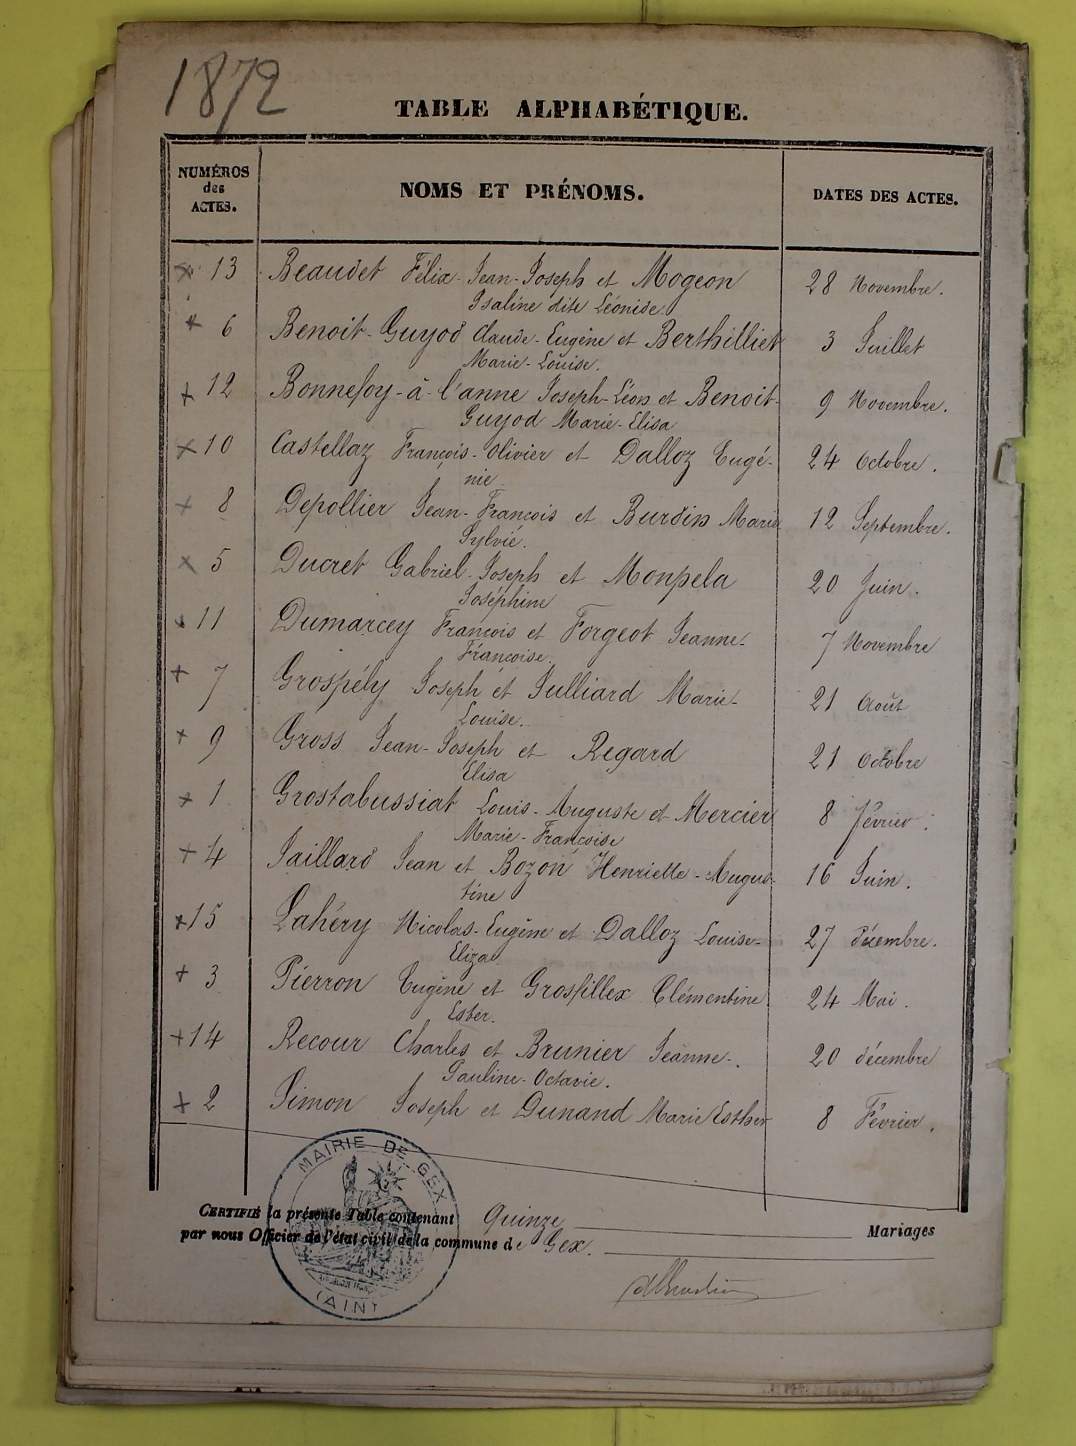 1872
TABLE ALPHABÉTIQUE.
NUMÉROS des ACTES. NOMS ET PRÉNOMS. DATES DES ACTES.
x 13 Beaudet Félix-Jean-Joseph et Mogeon 28 Novembre.
Isaline dite Léonise
+ 6 Benoit-Guyod Claude-Eugène et Berthilliet 3 Juillet
Marie-Louise.
+ 12 Bonnefoy-à-l'anne Joseph-Léon et Benoit- 9 Novembre.
Guyod Marie-Elisa
x 10 Castellaz François-Olivier et Dalloz Eugé- 24 Octobre.
nie
x 8 Depollier Jean-François et Burdin Marie 12 Septembre.
Sylvie.
x 5 Ducret Gabriel-Joseph et Monpela 20 Juin.
Joséphine
x 11 Dumarcey François et Forgeot Jeanne- 7 Novembre
Françoise.
+ 7 Grospély Joseph et Julliard Marie- 21 Août
Louise.
+ 9 Gross Jean-Joseph et Regard 21 Octobre
Elisa
+ 1 Grostabussiat Louis-Auguste et Mercier 8 février.
Marie-Françoise
+ 4 Jaillard Jean et Bozon Henriette-Augus- 16 Juin.
tine
+ 15 Lahéry Nicolas-Eugène et Dalloz Louise- 27 décembre.
Eliza
+ 3 Pierron Eugène et Grosfillex Clémentine 24 Mai.
Ester.
+ 14 Recour Charles et Brunier Jeanne-. 20 décembre
Pauline-Octavie.
+ 2 Simon Joseph et Dunand Marie Esther 8 Février.
MAIRIE DE GEX
(AIN)
CERTIFIÉ la présente Table contenant Quinze Mariages
par nous Officier de l'état civil de la commune de Gex.